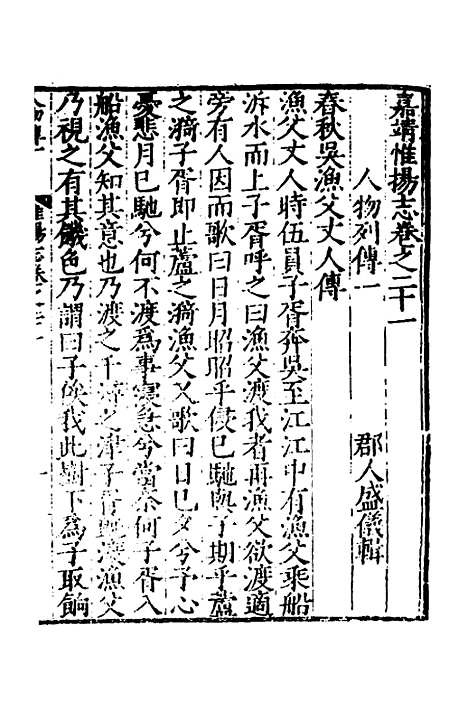 嘉靖惟揚志卷之二十一
人物列傳一　郡人盛儀輯
春秋吳漁父丈人傳
漁父丈人時伍員子胥奔吳至江江中有漁父乘船
泝水而上子胥呼之曰漁父渡我者再漁父欲渡適
旁有人因而歌曰日月昭昭乎侵已馳與子期乎蘆
之漪子胥即止蘆之漪漁父又歌曰日已夕兮予心
憂悲月已馳兮何不渡爲事寖急兮當柰何子胥入
船漁父知其意也乃渡之千潯之津子胥旣渡漁父
乃視之有其饑色乃謂曰子俟我此樹下爲子取餉